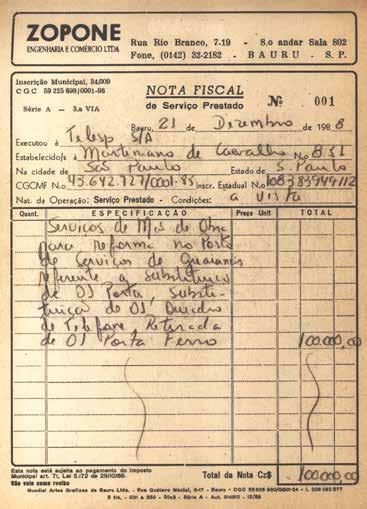 ZOPONE
ENGENHARIA E COMÉRCIO LTDA
Rua Rio Branco, 7-19 - 8.o andar Sala 802
Fone, (0142) 32-2182 - BAURU - S.P.
Inscrição Municipal, 34,009
CGC 59 225 698/0001-96
Série A - 3.a VIA
NOTA FISCAL
de Serviço Prestado
Nº 001
Bauru, 21 de Dezembro de 1988
Executou à Telesp S/A
Estabelecido/s à Martiniano de Carvalho N.o 851
Na cidade de São Paulo Estado de S. Paulo
CGCMF N.o 43.642.727/0001-85 Inscr. Estadual N.o 108383949112
Nat. da Operação: Serviço Prestado - Condições: a vista
Quant. ESPECIFICAÇÃO Preço Unit TOTAL
Serviços de Mão de Obra
para reforma no Posto
de Serviços de Guaianas
referente a substituição
de 01 Porta, Substi-
tuição de 01, Quadro
de Telefone, Retirada
de 01 Porta Ferro 100.000,00
Esta nota está sujeita ao pagamento do Imposto
Municipal art. 71, Lei 5.172 de 25/10/66.
Não vale como recibo
Total da Nota Cz$ 100.000,00
Mundial Artes Gráficas de Bauru Ltda. - Rua Gustavo Maciel, - Bauru - CGC